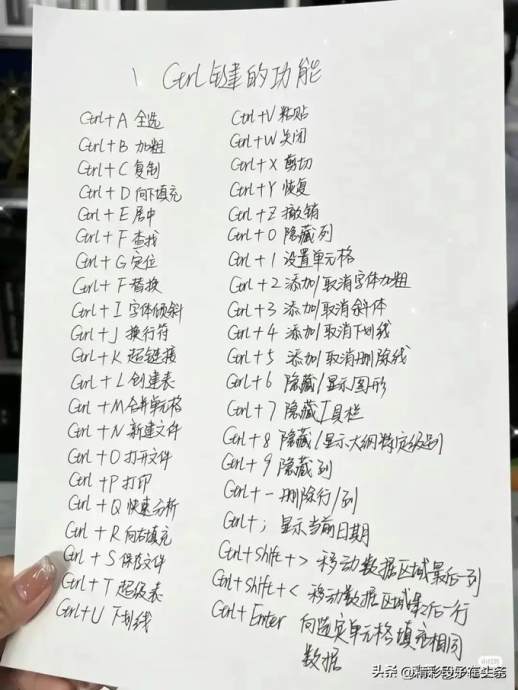 1 Ctrl键的功能
Ctrl+A 全选
Ctrl+B 加粗
Ctrl+C 复制
Ctrl+D 向下填充
Ctrl+E 居中
Ctrl+F 查找
Ctrl+G 定位
Ctrl+F 替换
Ctrl+I 字体倾斜
Ctrl+J 换行符
Ctrl+K 超链接
Ctrl+L 创建表
Ctrl+M 合并单元格
Ctrl+N 新建文件
Ctrl+O 打开文件
Ctrl+P 打印
Ctrl+Q 快速分析
Ctrl+R 向右填充
Ctrl+S 保存文件
Ctrl+T 超级表
Ctrl+U 下划线
Ctrl+V 粘贴
Ctrl+W 关闭
Ctrl+X 剪切
Ctrl+Y 恢复
Ctrl+Z 撤销
Ctrl+0 隐藏列
Ctrl+1 设置单元格
Ctrl+2 添加/取消字体加粗
Ctrl+3 添加/取消斜体
Ctrl+4 添加/取消下划线
Ctrl+5 添加/取消删除线
Ctrl+6 隐藏/显示图形
Ctrl+7 隐藏工具栏
Ctrl+8 隐藏/显示大纲级别
Ctrl+9 隐藏列
Ctrl+- 删除行/列
Ctrl+; 显示当前日期
Ctrl+Shift+> 移动数据区域最后一列
Ctrl+Shift+< 移动数据区域最后一行
Ctrl+Enter 向选实单元格填充相同
数据
小红书
头条 @精彩